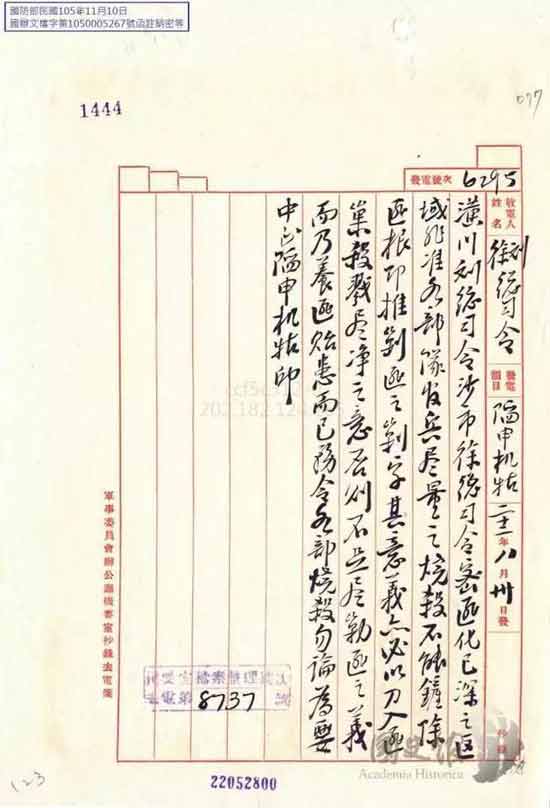 國防部民國105年11月10日
國辦文檔字第1050005267號函註銷密等
1444
077
次號電發
6295
收電人姓名 徐劉總司令 發電韻目 陷申机牯 二十一年八月卅日發
潢川刘總司令沙市徐總司令密匪化已深之区
域非准各部隊官兵尽量之燒殺不能鏟除
匪根即推剿匪之剿字其意義亦必以刀入匪
巢殺戮尽净之意否则不足尽勦匪之義
而乃養匪贻患而已務令各部燒殺勿論為要
中正陷申机牯印
軍事委員會辦公廳機要室抄錄去電箋
去電第8737號
國史館
Academia Historica
22052800
123